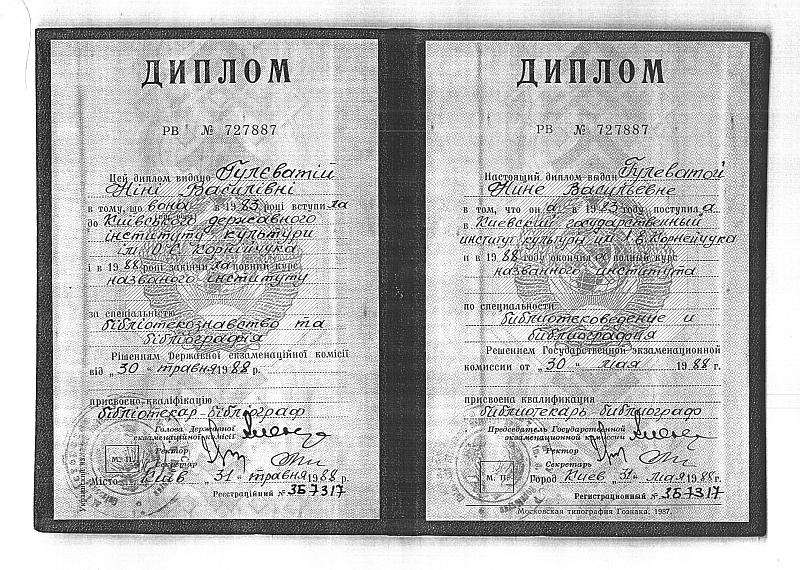 ДИПЛОМ
РВ № 727887
Цей диплом видано Гулєватій
Ніні Василівні
в тому, що вона в 1983 році вступила
до Київського державного
інституту культури
ім. О.Є. Корнійчука
і в 1988 році закінчила повний курс
названого інституту
за спеціальністю
бібліотекознавство та
бібліографія
Рішенням Державної екзаменаційної комісії
від „30" травня 1988 р.
присвоєно кваліфікацію
бібліотекар-бібліограф
Голова Державної
екзаменаційної комісії
Ректор
М. П.
Секретар
Місто Київ „31" травня 1988 р.
Реєстраційний № 357317
ДИПЛОМ
РВ № 727887
Настоящий диплом выдан Гулеватой
Нине Васильевне
в том, что он а в 1983 году поступила
в Киевский государственный
институт культуры им. А.Е. Корнейчука
и в 1988 году окончила полный курс
названного института
по специальности
библиотековедение и
библиография
Решением Государственной экзаменационной
комиссии от „30" мая 1988 г.
присвоена квалификация
библиотекарь библиограф
Председатель Государственной
экзаменационной комиссии
Ректор
Секретарь
М. П.
Город Киев „31" мая 1988 г.
Регистрационный № 357317
Московская типография Гознака. 1987.